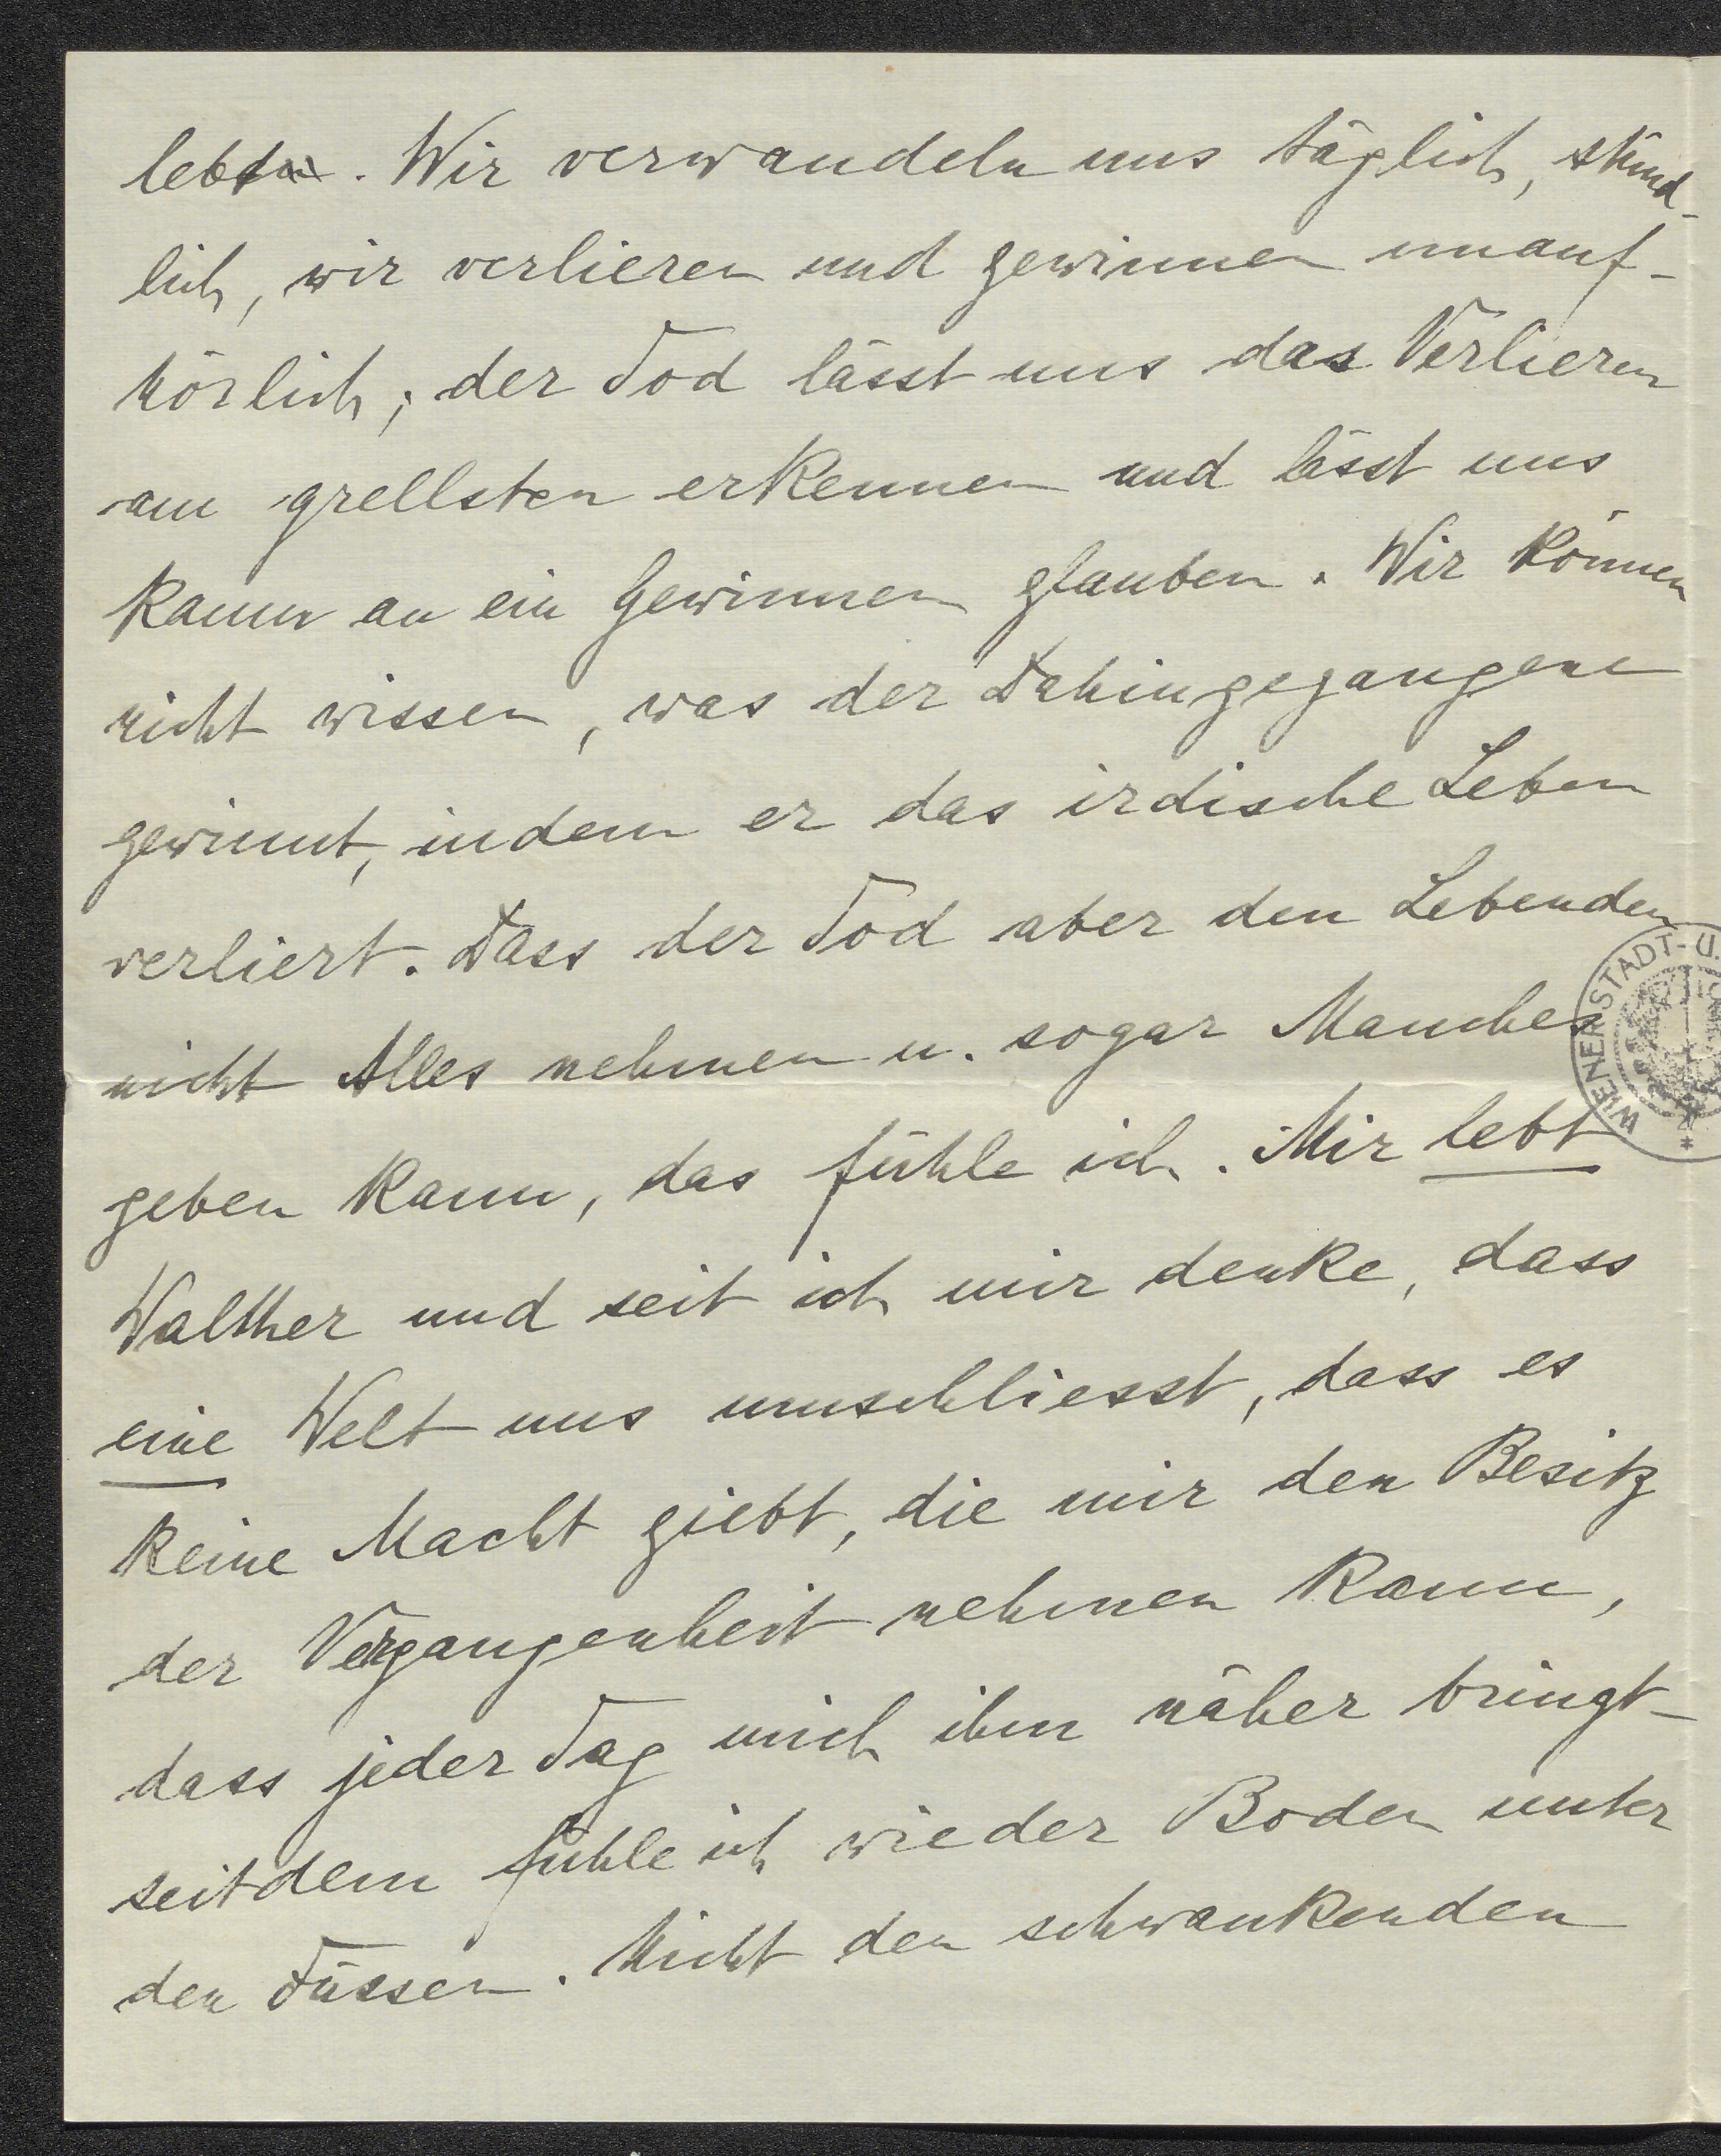 lebt. Wir verwandeln uns täglich, stünd-
lich, wir verlieren und gewinnen unauf-
hörlich; der Tod lässt uns das Verlieren
am grellsten erkennen und lässt uns
kaum an ein Gewinnen glauben. Wir können
nicht wissen, was der Dahingegangene
gewinnt, indem er das irdische Leben
verliert. Dass der Tod aber den Lebenden
nicht Alles nehmen u. sogar Manches
geben kann, das fühle ich. Mir lebt
Walther und seit ich mir denke, dass
eine Welt uns umschliesst, dass es
keine Macht giebt, die mir den Besitz
der Vergangenheit nehmen kann,
dass jeder Tag mich ihm näher bringt –
seitdem fühle ich wieder Boden unter
den Füssen. Nicht den schwankenden
WIENER STADT- U.